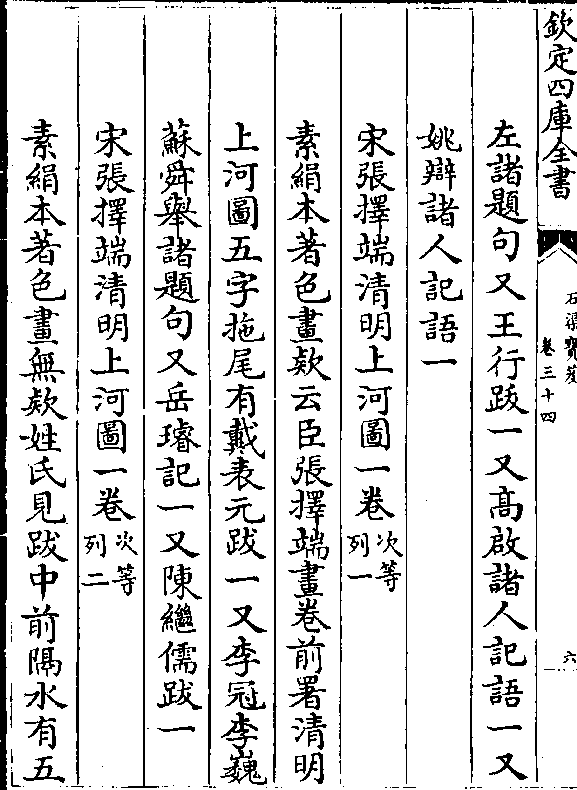 欽定四庫全書
石渠寳笈
卷三十四
六
左諸題句又王行跋一又髙啟諸人記語一又
姚辯諸人記語一
宋張擇端清明上河圖一卷次等
列一
素絹本著色畫欵云臣張擇端畫卷前署清明
上河圖五字拖尾有戴表元跋一又李冠李巍
蘇舜舉諸題句又岳璿記一又陳繼儒跋一
宋張擇端清明上河圖一卷次等
列二
素絹本著色畫無欵姓氏見跋中前隔水有五